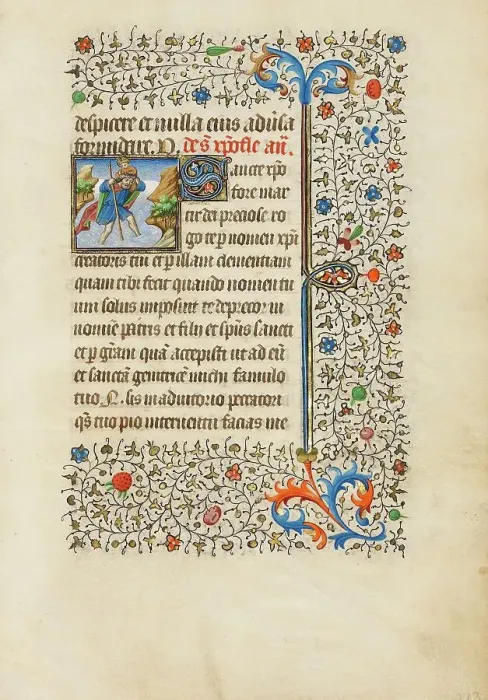 despicere et nulla eius adu̾sa
formidare. P. de s̃ xp̃ofle añ.
Sancte xp̃o
fore mar
tir dei preciose ro
go te ꝑ nomen xp̃i
creatoris tui et ꝑ illam clementiam
quam tibi fecit quando nomen tu
um solus imposuit te deprecor in
nomĩe patris et filij et sp̃us sancti
et ꝑ gr̃am quã accepisti ut ad eũ
et sanctã genitricẽ michi famulo
tuo .N. sis in adiutorio peccatori
qs̃ tuo pio interuentu facias me